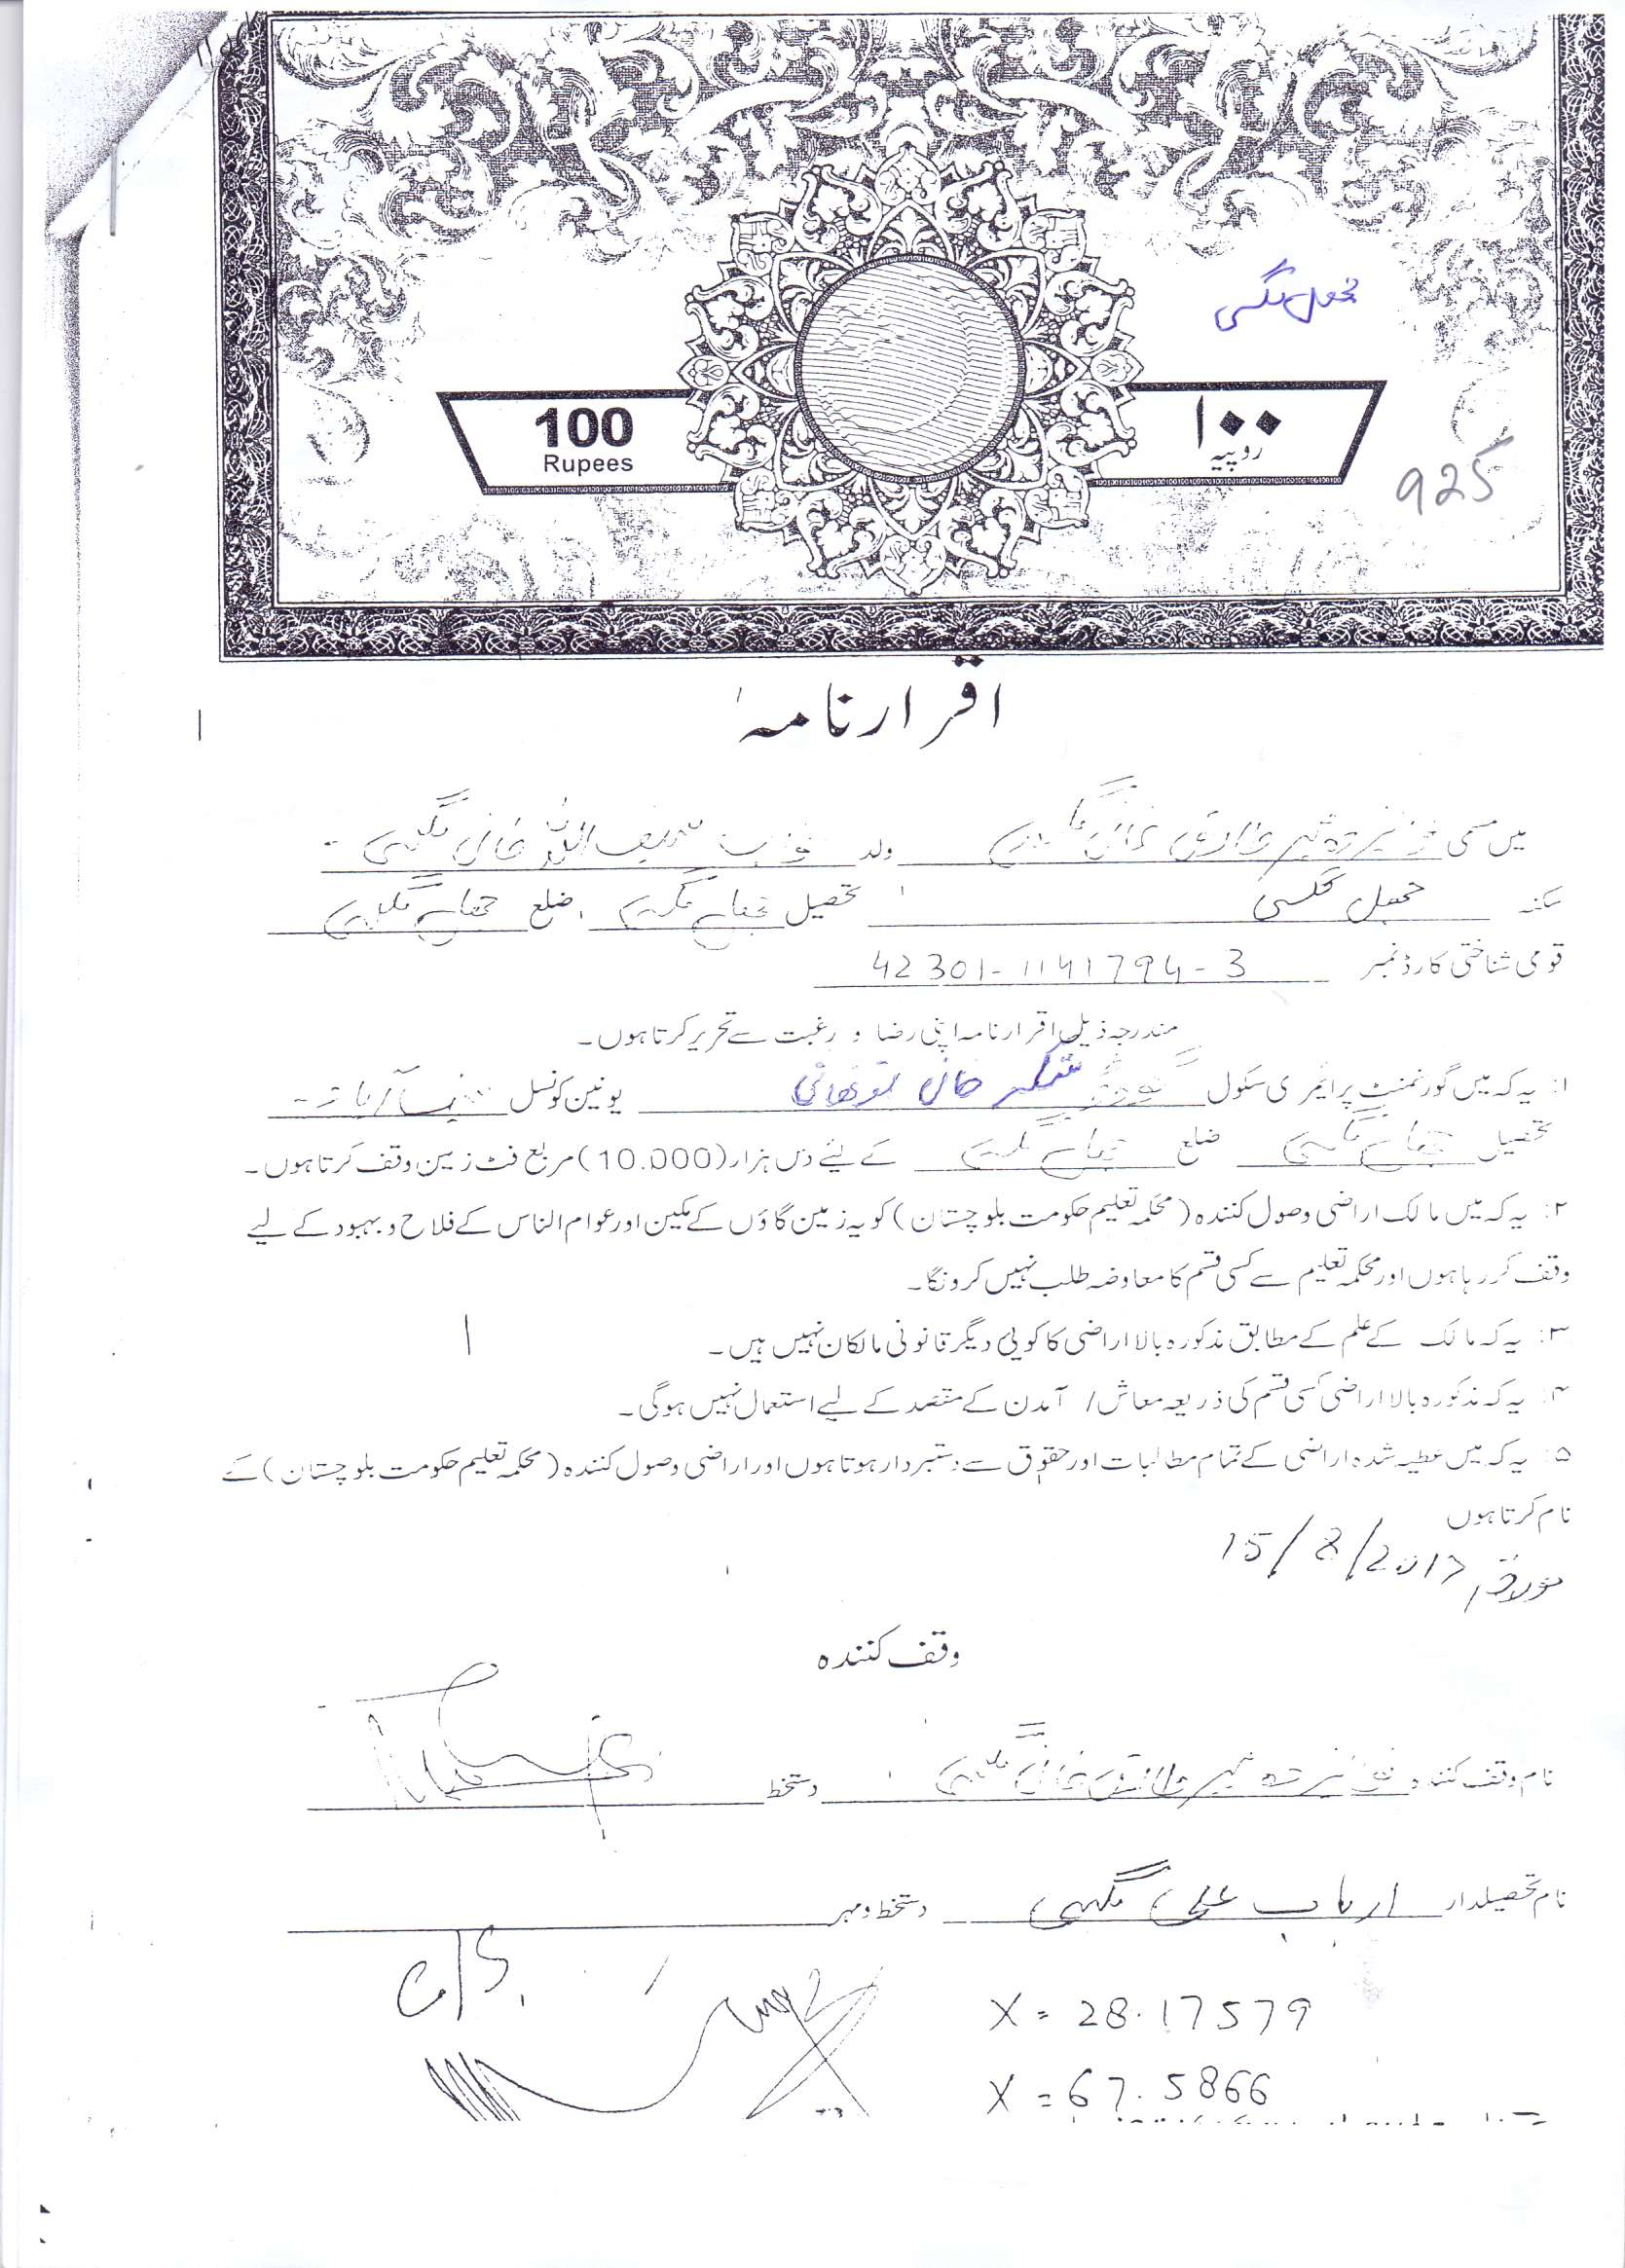 جھل مگسی
100
Rupees
۱۰۰
روپیہ
925
اقرارنامہ
میں مسمی نوابزادہ میر طارق خان مگسی ولد نواب سیف اللہ خان مگسی
سکنہ جھل مگسی تحصیل جھل مگسی ضلع جھل مگسی
قومی شناختی کارڈ نمبر 42301-1141794-3
مندرجہ ذیل اقرارنامہ اپنی رضا و رغبت سے تحریر کرتا ہوں۔
۱: یہ کہ میں گورنمنٹ پرائمری سکول خان یونین کونسل
تحصیل جھل مگسی ضلع جھل مگسی کے لیئے دس ہزار (10.000) مربع فٹ زمین وقف کرتا ہوں۔
۲: یہ کہ میں مالک اراضی وصول کنندہ (محکمہ تعلیم حکومت بلوچستان) کو یہ زمین گاؤں کے مکین اور عوام الناس کے فلاح و بہبود کے لیے
وقف کر رہا ہوں اور محکمہ تعلیم سے کسی قسم کا معاوضہ طلب نہیں کرونگا۔
۳: یہ کہ مالک کے علم کے مطابق مذکورہ بالا اراضی کا کوئی دیگر قانونی مالکان نہیں ہیں۔
۴: یہ کہ مذکورہ بالا اراضی کسی قسم کی ذریعہ معاش/ آمدن کے مقصد کے لیے استعمال نہیں ہوگی۔
۵: یہ کہ میں عطیہ شدہ اراضی کے تمام مطالبات اور حقوق سے دستبردار ہوتا ہوں اور اراضی وصول کنندہ (محکمہ تعلیم حکومت بلوچستان) کے
نام کرتا ہوں
مورخہ 15/8/2017
وقف کنندہ
نام وقف کنندہ نوابزادہ میر طارق خان مگسی دستخط
نام تحصیلدار ارباب علی مگسی دستخط و مہر
X = 28.17579
X = 67.5866